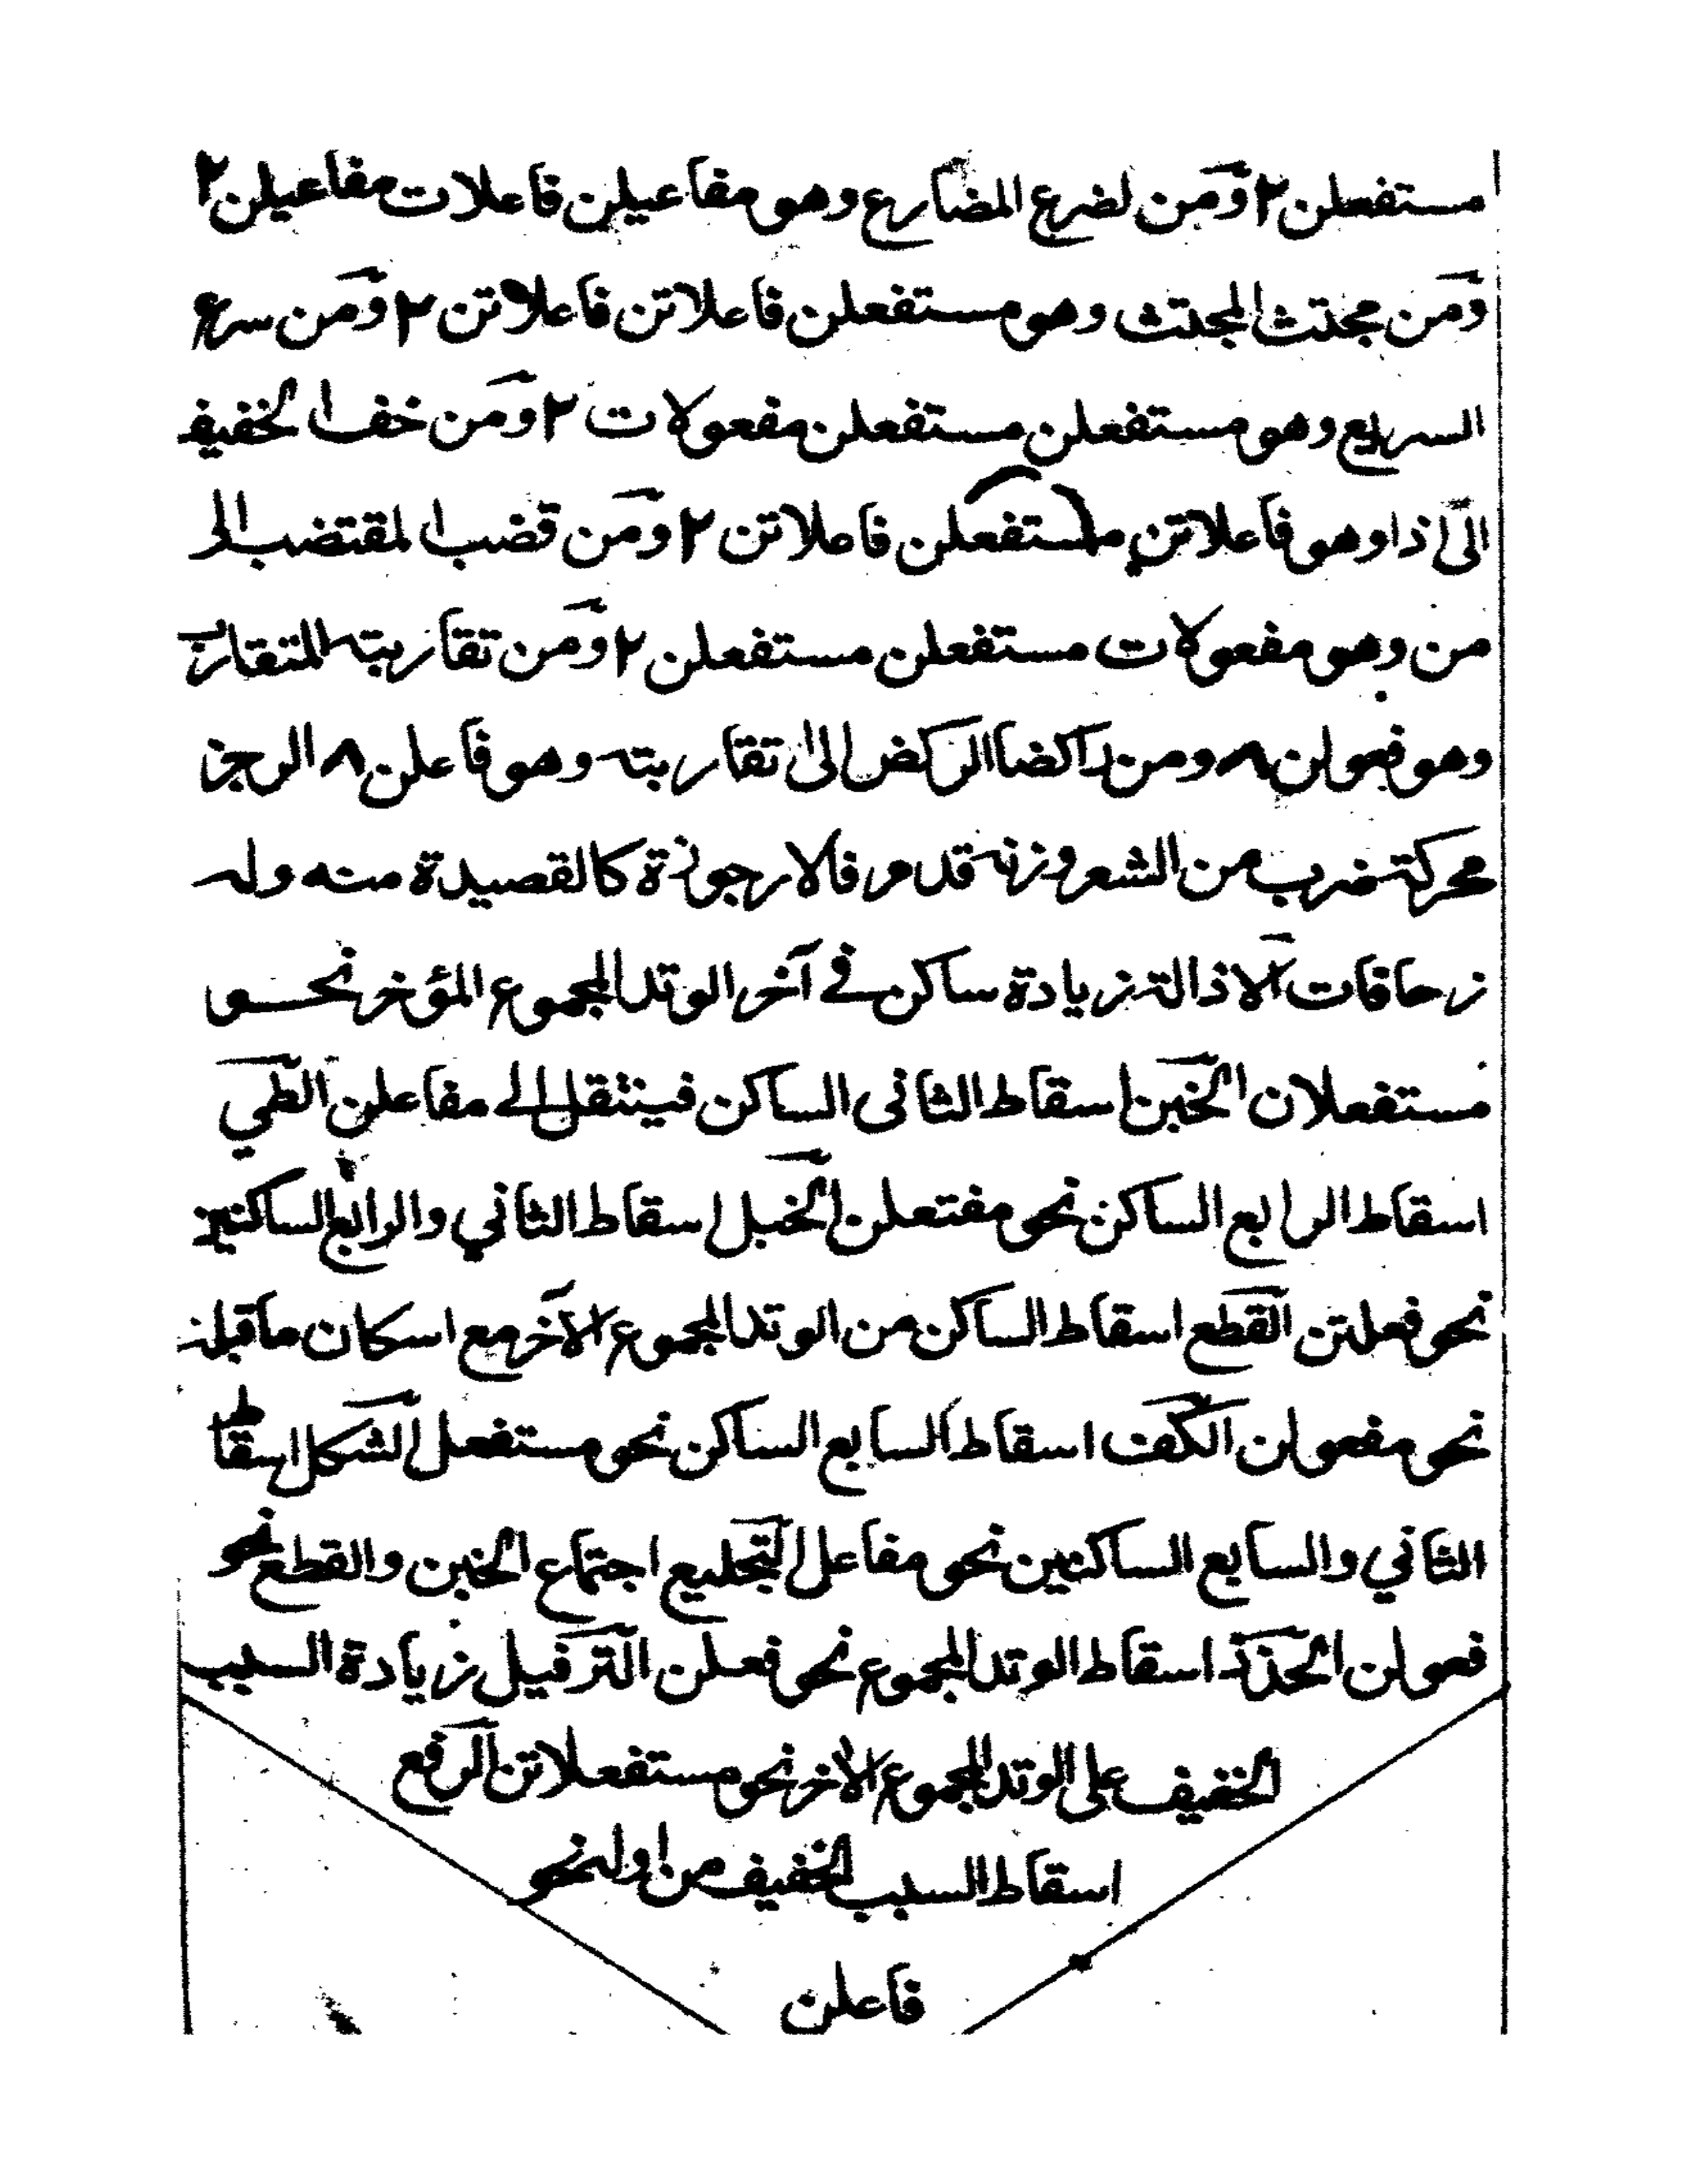 مستفعلن ٢ ومن لضرع المضارع وهو مفاعيلن فاعلات مفاعيلن ٢
ومن مجتث المجتث وهو مستفعلن فاعلاتن فاعلاتن ٢ ومن سرع
السريع وهو مستفعلن مستفعلن مفعولات ٢ ومن خف الخفيف
الى اذا وهو فاعلاتن مستفعلن فاعلاتن ٢ ومن قضب المقتضب الى
من وهو مفعولات مستفعلن مستفعلن ٢ ومن تقاربته المتقارب
وهو فعولن ٨ ومن راكضا الركض الى تقاربته وهو فاعلن ٨ الرجز
محركة ضرب من الشعر وزنه قد مر فالارجوزة كالقصيدة منه وله
زحافات الاذالة زيادة ساكن في آخر الوتد المجموع المؤخر نحو
مستفعلان الخبن اسقاط الثانى الساكن فينتقل الے مفاعلن الطي
اسقاط الرابع الساكن نحو مفتعلن الخبل اسقاط الثاني والرابع الساكنين
نحو فعلتن القطع اسقاط الساكن من الوتد المجموع الآخر مع اسكان ما قبله
نحو مفعولن الكف اسقاط السابع الساكن نحو مستفعل الشكل اسقاط
الثاني والسابع الساكنين نحو مفاعل التخليع اجتماع الخبن والقطع نحو
فعولن الحذذ اسقاط الوتد المجموع نحو فعلن الترفيل زيادة السبب
الخفيف على الوتد المجموع الاخر نحو مستفعلاتن الرفع
اسقاط السبب الخفيف من اوله نحو
فاعلن